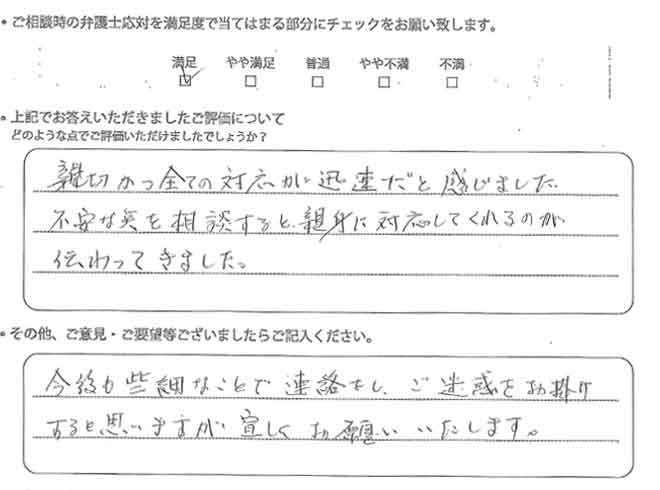 • ご相談時の弁護士応対を満足度で当てはまる部分にチェックをお願い致します。
満足 やや満足 普通 やや不満 不満
☑ □ □ □ □
• 上記でお答えいただきましたご評価について
どのような点でご評価いただけましたでしょうか?
親切かつ全ての対応が迅速だと感じました。
不安な点を相談すると、親身に対応してくれるのが
伝わってきました。
• その他、ご意見・ご要望等ございましたらご記入ください。
今後も些細なことで連絡をし、ご迷惑をお掛け
すると思いますが宜しくお願いいたします。